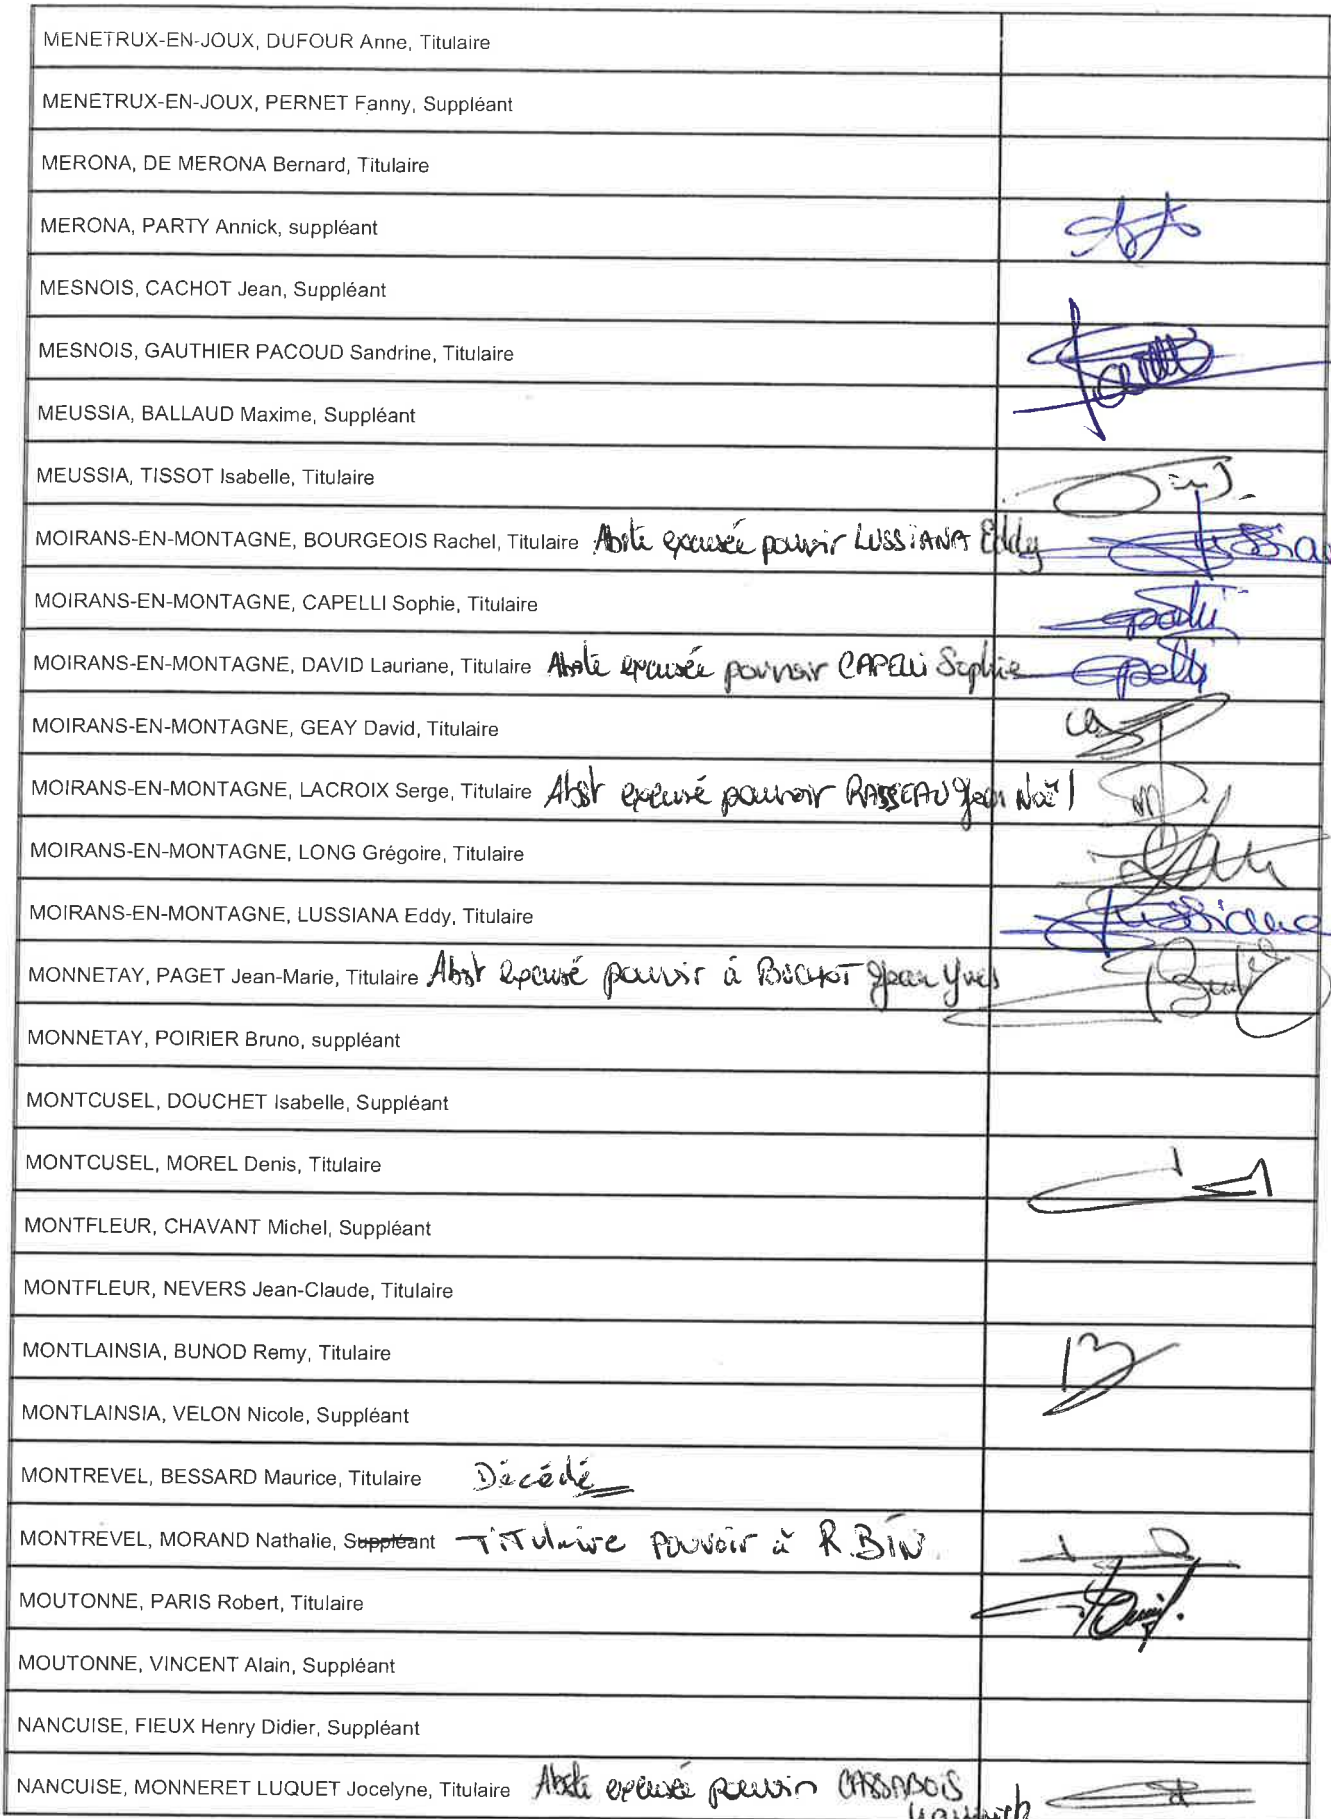 MENETRUX-EN-JOUX, DUFOUR Anne, Titulaire
MENETRUX-EN-JOUX, PERNET Fanny, Suppléant
MERONA, DE MERONA Bernard, Titulaire
MERONA, PARTY Annick, suppléant
MESNOIS, CACHOT Jean, Suppléant
MESNOIS, GAUTHIER PACOUD Sandrine, Titulaire
MEUSSIA, BALLAUD Maxime, Suppléant
MEUSSIA, TISSOT Isabelle, Titulaire
MOIRANS-EN-MONTAGNE, BOURGEOIS Rachel, Titulaire Abste excusée pouvoir LUSSIANA Eddy
MOIRANS-EN-MONTAGNE, CAPELLI Sophie, Titulaire
MOIRANS-EN-MONTAGNE, DAVID Lauriane, Titulaire Abste excusée pouvoir CAPELLI Sophie
MOIRANS-EN-MONTAGNE, GEAY David, Titulaire
MOIRANS-EN-MONTAGNE, LACROIX Serge, Titulaire Abst excusé pouvoir RASSEAU Jean Noël
MOIRANS-EN-MONTAGNE, LONG Grégoire, Titulaire
MOIRANS-EN-MONTAGNE, LUSSIANA Eddy, Titulaire Lussiana
MONNETAY, PAGET Jean-Marie, Titulaire Abst excusé pouvoir à BUCHOT Jean Yves
MONNETAY, POIRIER Bruno, suppléant
MONTCUSEL, DOUCHET Isabelle, Suppléant
MONTCUSEL, MOREL Denis, Titulaire
MONTFLEUR, CHAVANT Michel, Suppléant
MONTFLEUR, NEVERS Jean-Claude, Titulaire
MONTLAINSIA, BUNOD Remy, Titulaire
MONTLAINSIA, VELON Nicole, Suppléant
MONTREVEL, BESSARD Maurice, Titulaire Décédé
MONTREVEL, MORAND Nathalie, Suppléant Titulaire pouvoir à R. BIN
MOUTONNE, PARIS Robert, Titulaire
MOUTONNE, VINCENT Alain, Suppléant
NANCUISE, FIEUX Henry Didier, Suppléant
NANCUISE, MONNERET LUQUET Jocelyne, Titulaire Abste excusée pouvoir CASSABOIS